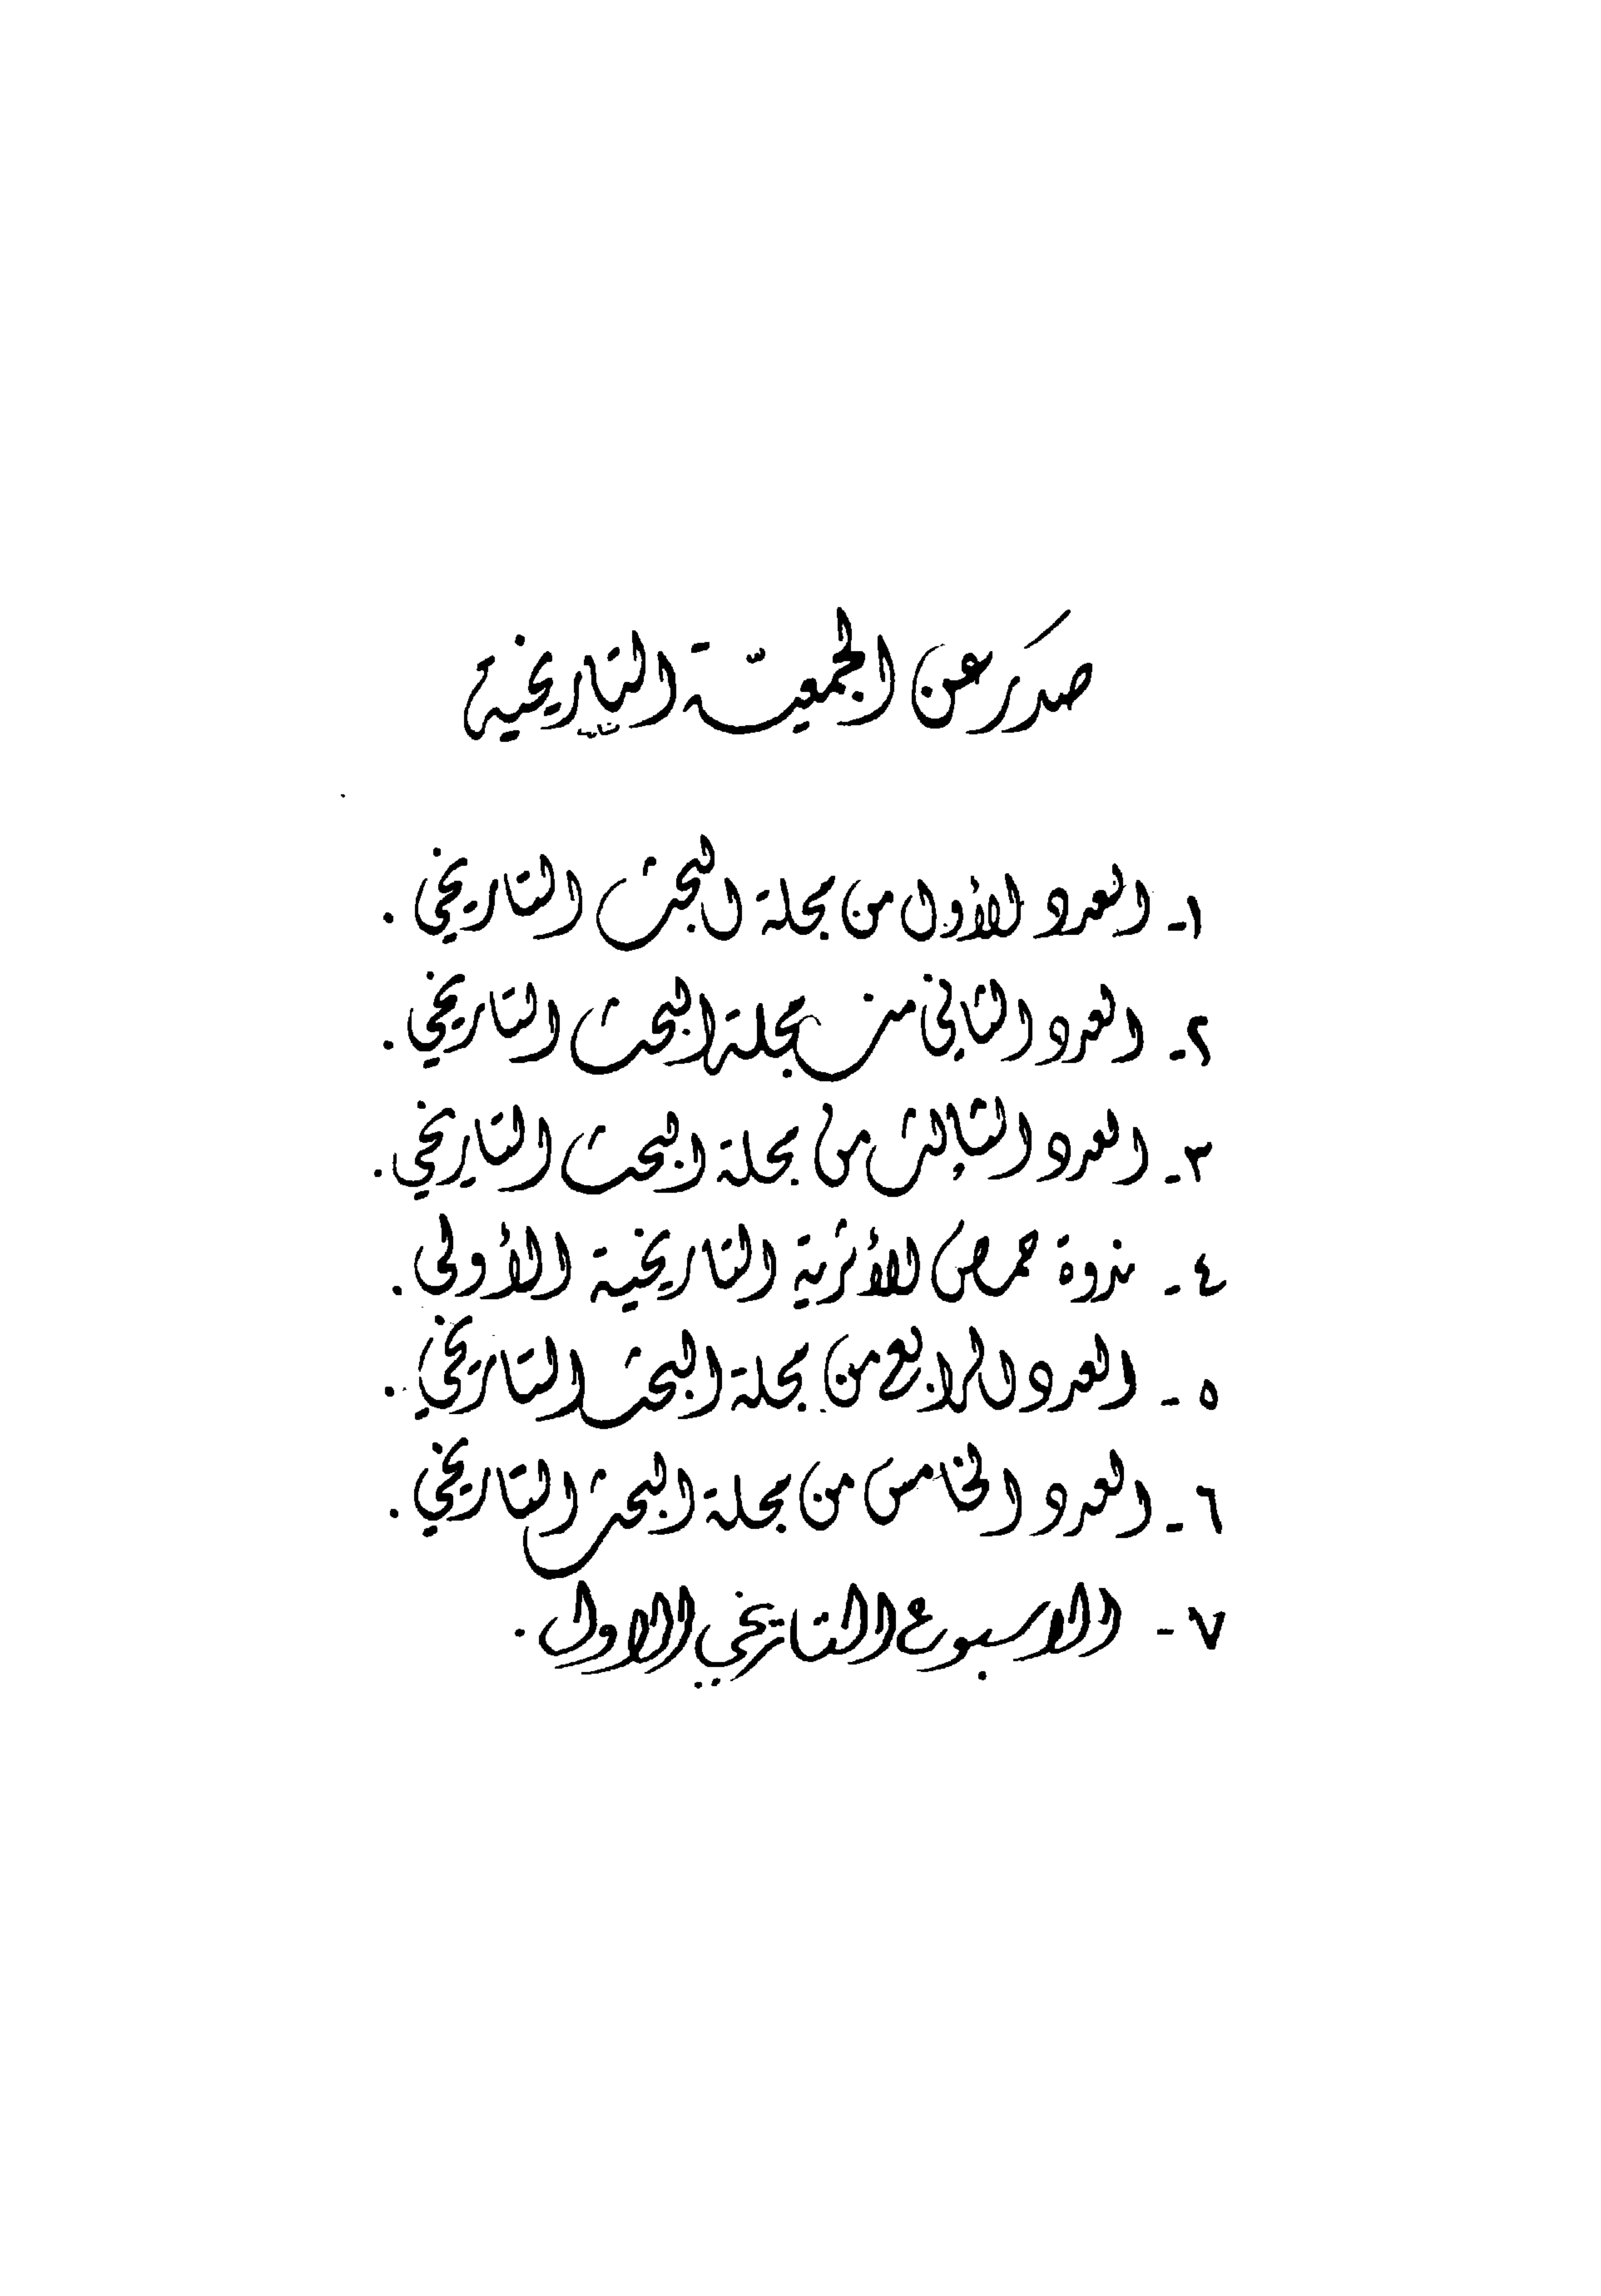 صدَر عن الجمعيّة التاريخية
١- العدد الأول من مجلة البحث التاريخي .
٢- العدد الثاني من مجلة البحث التاريخي .
٣- العدد الثالث من مجلة البحث التاريخي .
٤- ندوة حمص الأثرية التاريخية الأولى .
٥- العدد الرابع من مجلة البحث التاريخي .
٦- العدد الخامس من مجلة البحث التاريخي .
٧- الاسبوع التاريخي الاول .